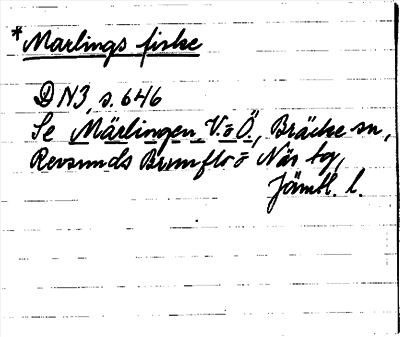 *Marlings fiske
DN3, s. 646
Se Märlingen V. o Ö., Bräcke sn,
Revsunds Brunflo o Näs tg,
Jämtl. l.